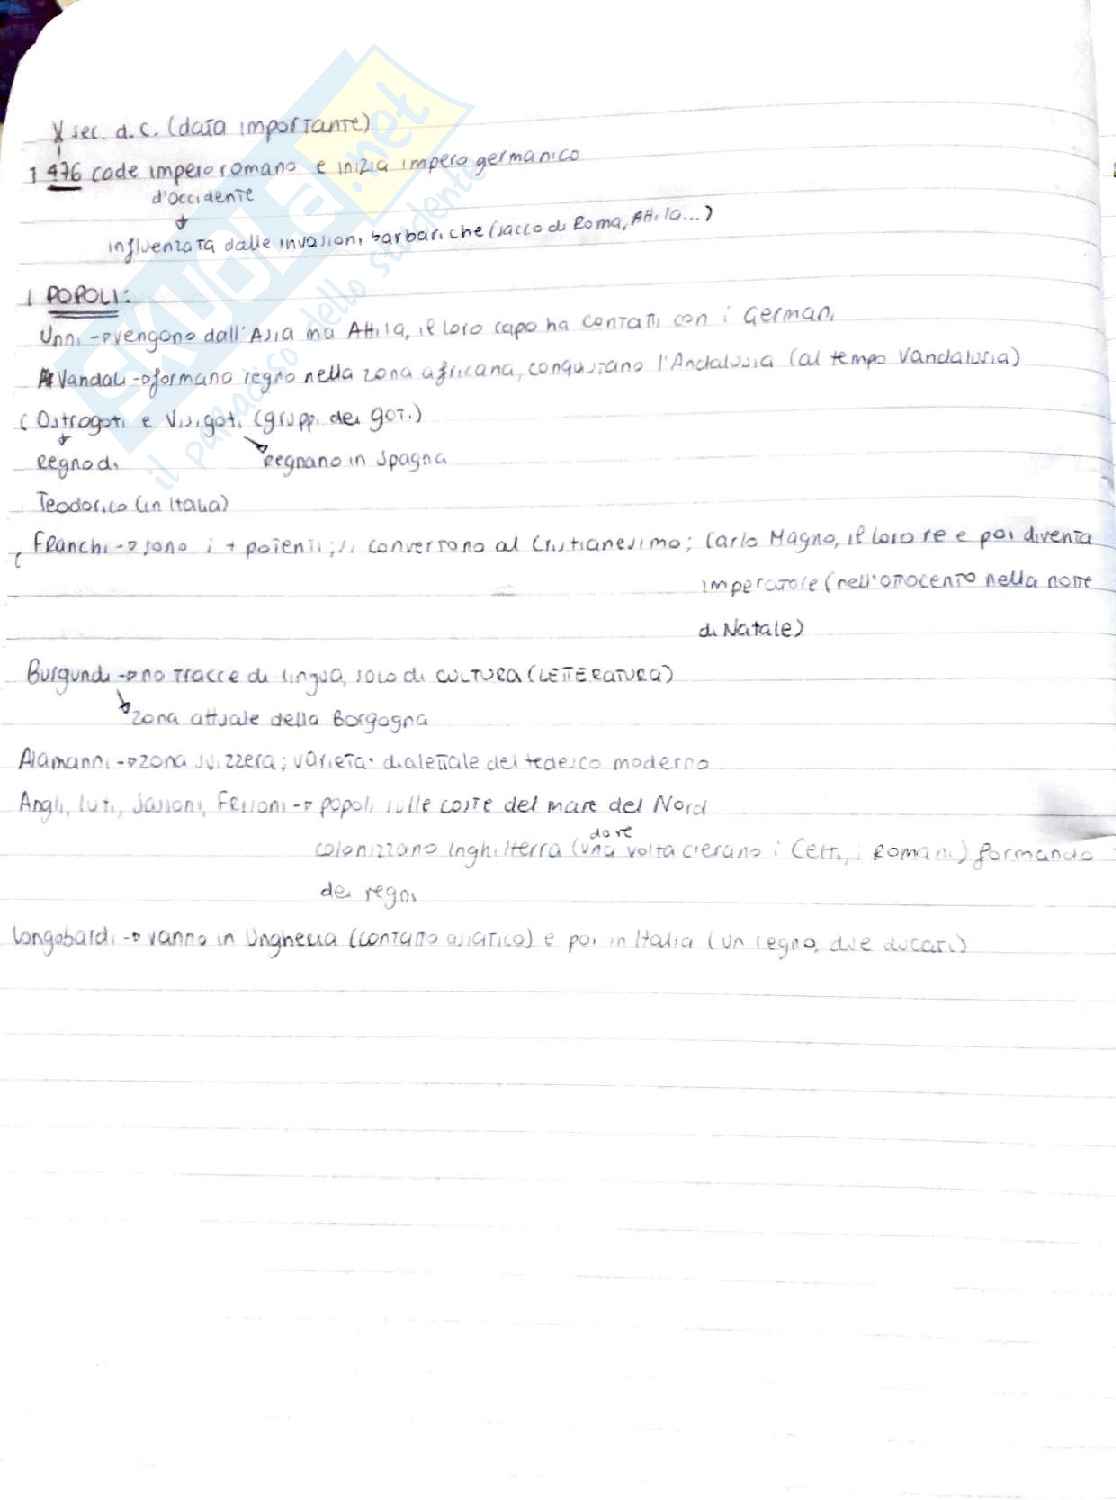 V sec. d.C. (data importante)
476 cade impero romano e inizia impero germanico
d'occidente
influenzata dalle invasioni barbariche (sacco di Roma, Attila...)
I POPOLI:
Unni → vengono dall'Asia ma Attila, il loro capo ha contatti con i Germani
Vandali → formano regno nella zona africana, conquistano l'Andalusia (al tempo Vandalusia)
Ostrogoti e Visigoti (gruppi dei goti)
Regno di
Regnano in Spagna
Teodorico (in Italia)
Franchi → sono i + potenti; si convertono al Cristianesimo; Carlo Magno, il loro re e poi diventa
imperatore (nell'ottocento nella notte
di Natale)
Burgundi → no tracce di lingua, solo di CULTURA (LETTERATURA)
zona attuale della Borgogna
Alamanni → zona svizzera; varietà dialettale del tedesco moderno
Angli, Iuti, Sassoni, Frisoni → popoli sulle coste del mare del Nord
dove
colonizzano Inghilterra (una volta c'erano i Celti, i Romani) formando
dei regni
Longobardi → vanno in Ungheria (contatto asiatico) e poi in Italia (un regno, due ducati)
SKUOLA.net
il paradiso dello studente